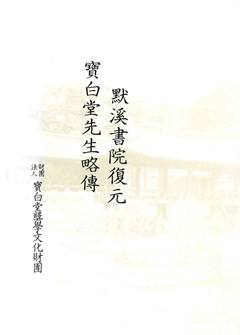 默溪書院復元
寶白堂先生略傳
財團法人 寶白堂奬學文化財團